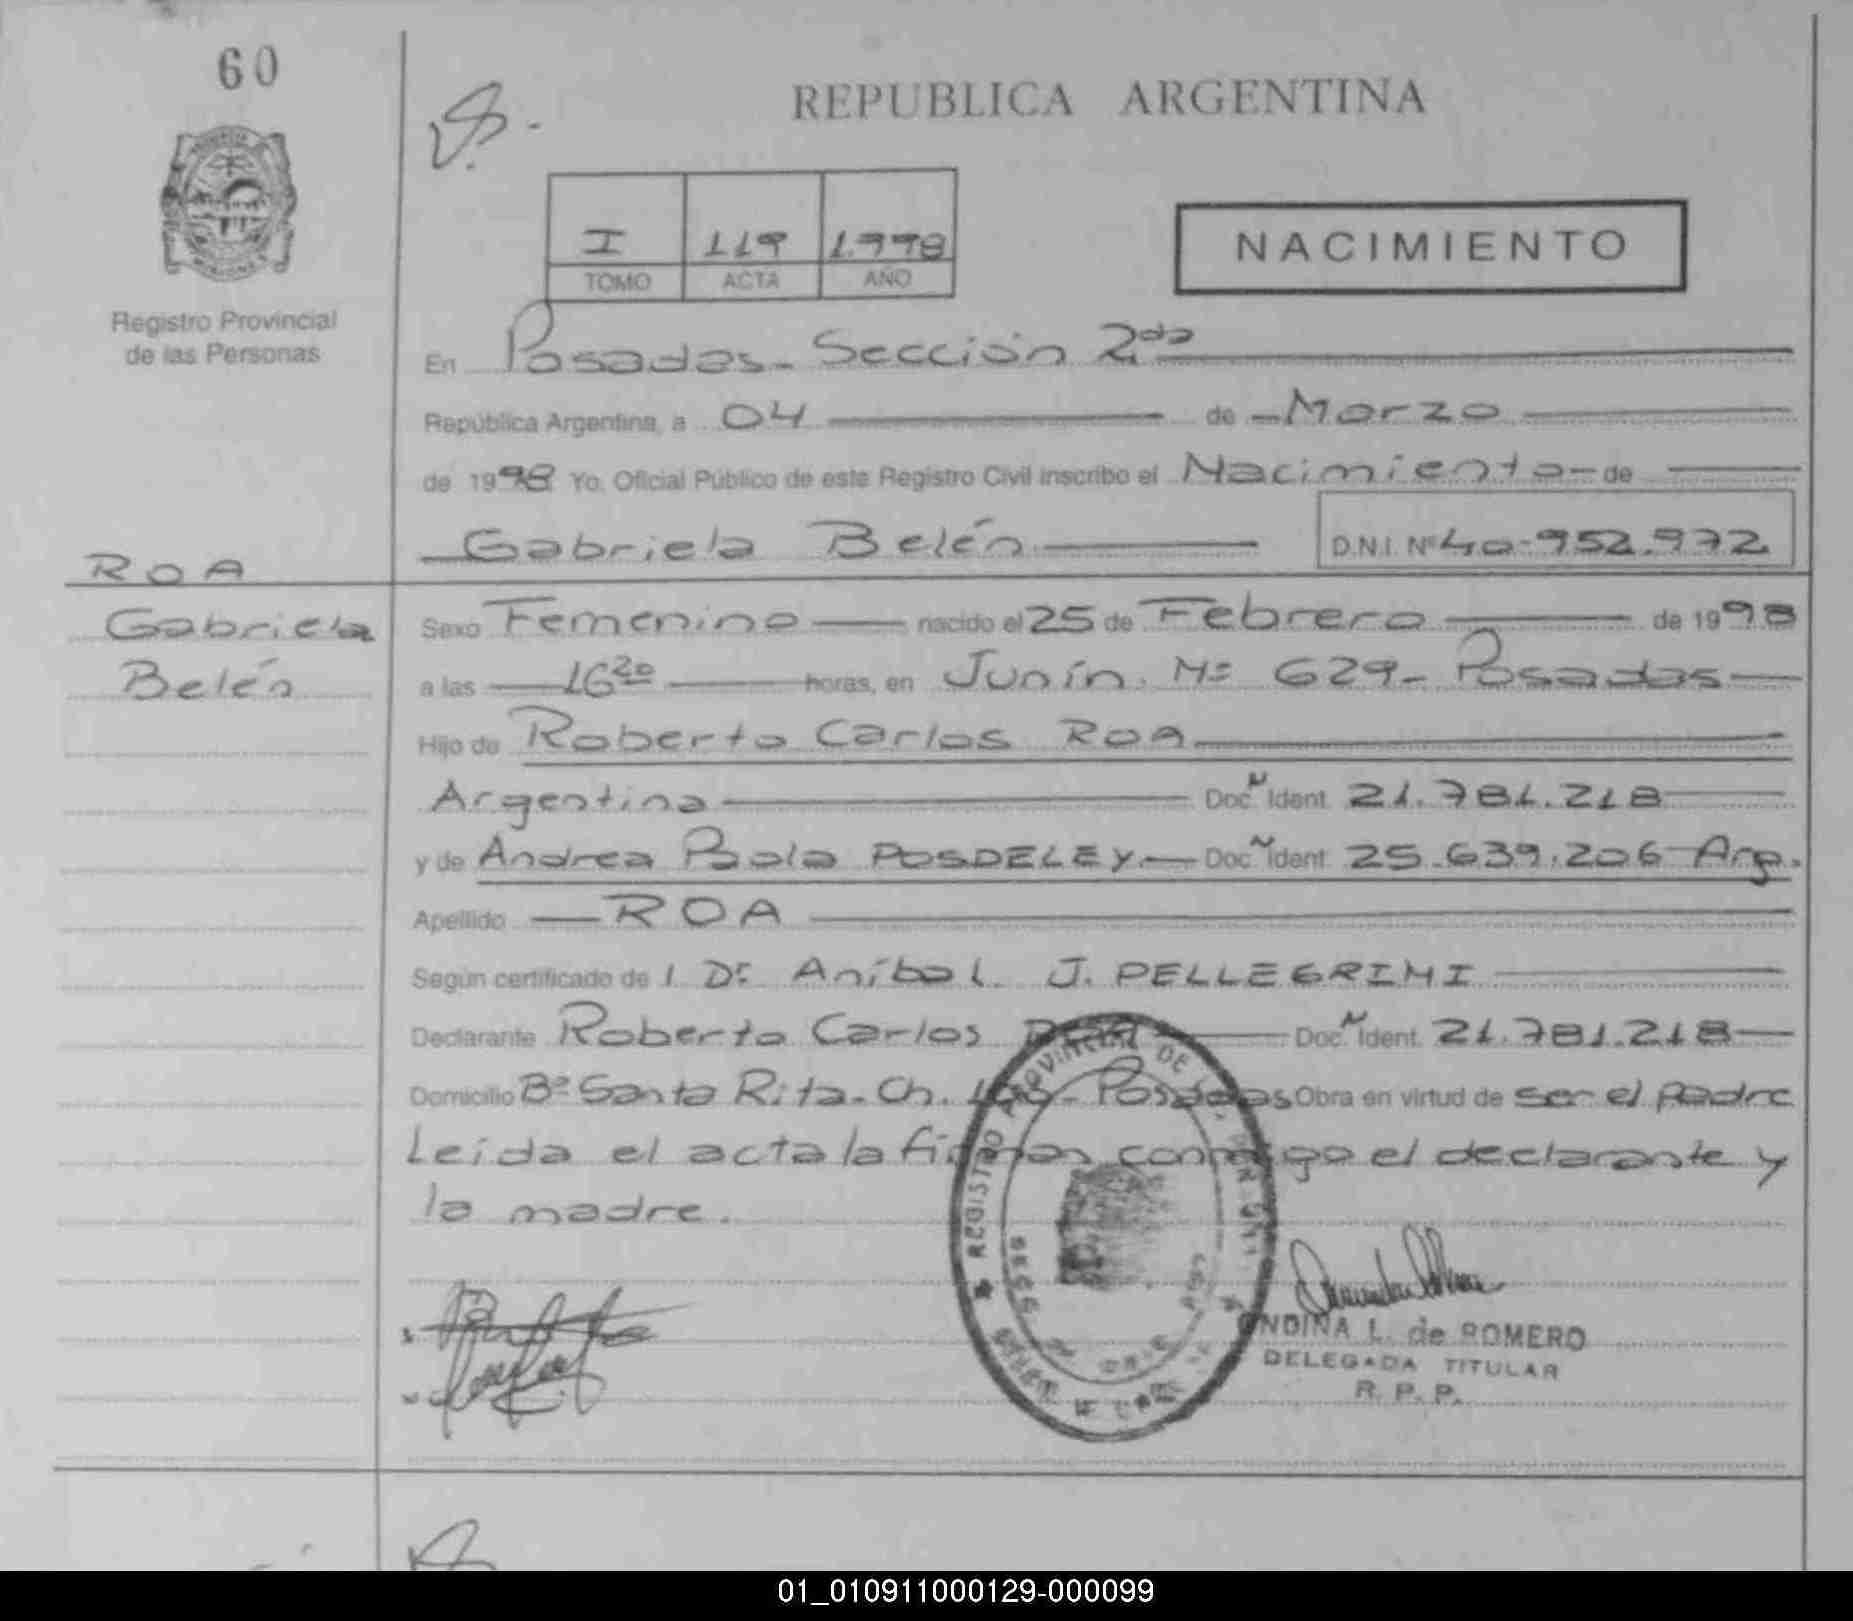 60
REPUBLICA ARGENTINA
I 119 1.998
TOMO ACTA AÑO
NACIMIENTO
Registro Provincial
de las Personas
En Posadas - Sección 2da
República Argentina, a 04 de Marzo
de 1998 Yo, Oficial Público de este Registro Civil inscribo el Nacimiento de
Gabriela Belén D.N.I. Nº 40.952.972
ROA
Gabriela
Belén
Sexo Femenino nacido el 25 de Febrero de 1998
a las 16 20 horas, en Junín Nº 629 - Posadas
Hijo de Roberto Carlos ROA
Argentina Doc. N Ident. 21.781.218
y de Andrea Paola POSDELEY Doc. N Ident. 25.639.206 Arg.
Apellido ROA
Según certificado de l Dr. Aníbal J. PELLEGRINI
Declarante Roberto Carlos ROA Doc. N Ident. 21.781.218
Domicilio Bº Santa Rita - Ch. - Posadas Obra en virtud de ser el padre
Leída el acta la firman conmigo el declarante y
la madre.
REGISTRO PROVINCIAL DE
ONDINA L. de ROMERO
DELEGADA TITULAR
R. P. P.
01_010911000129-000099